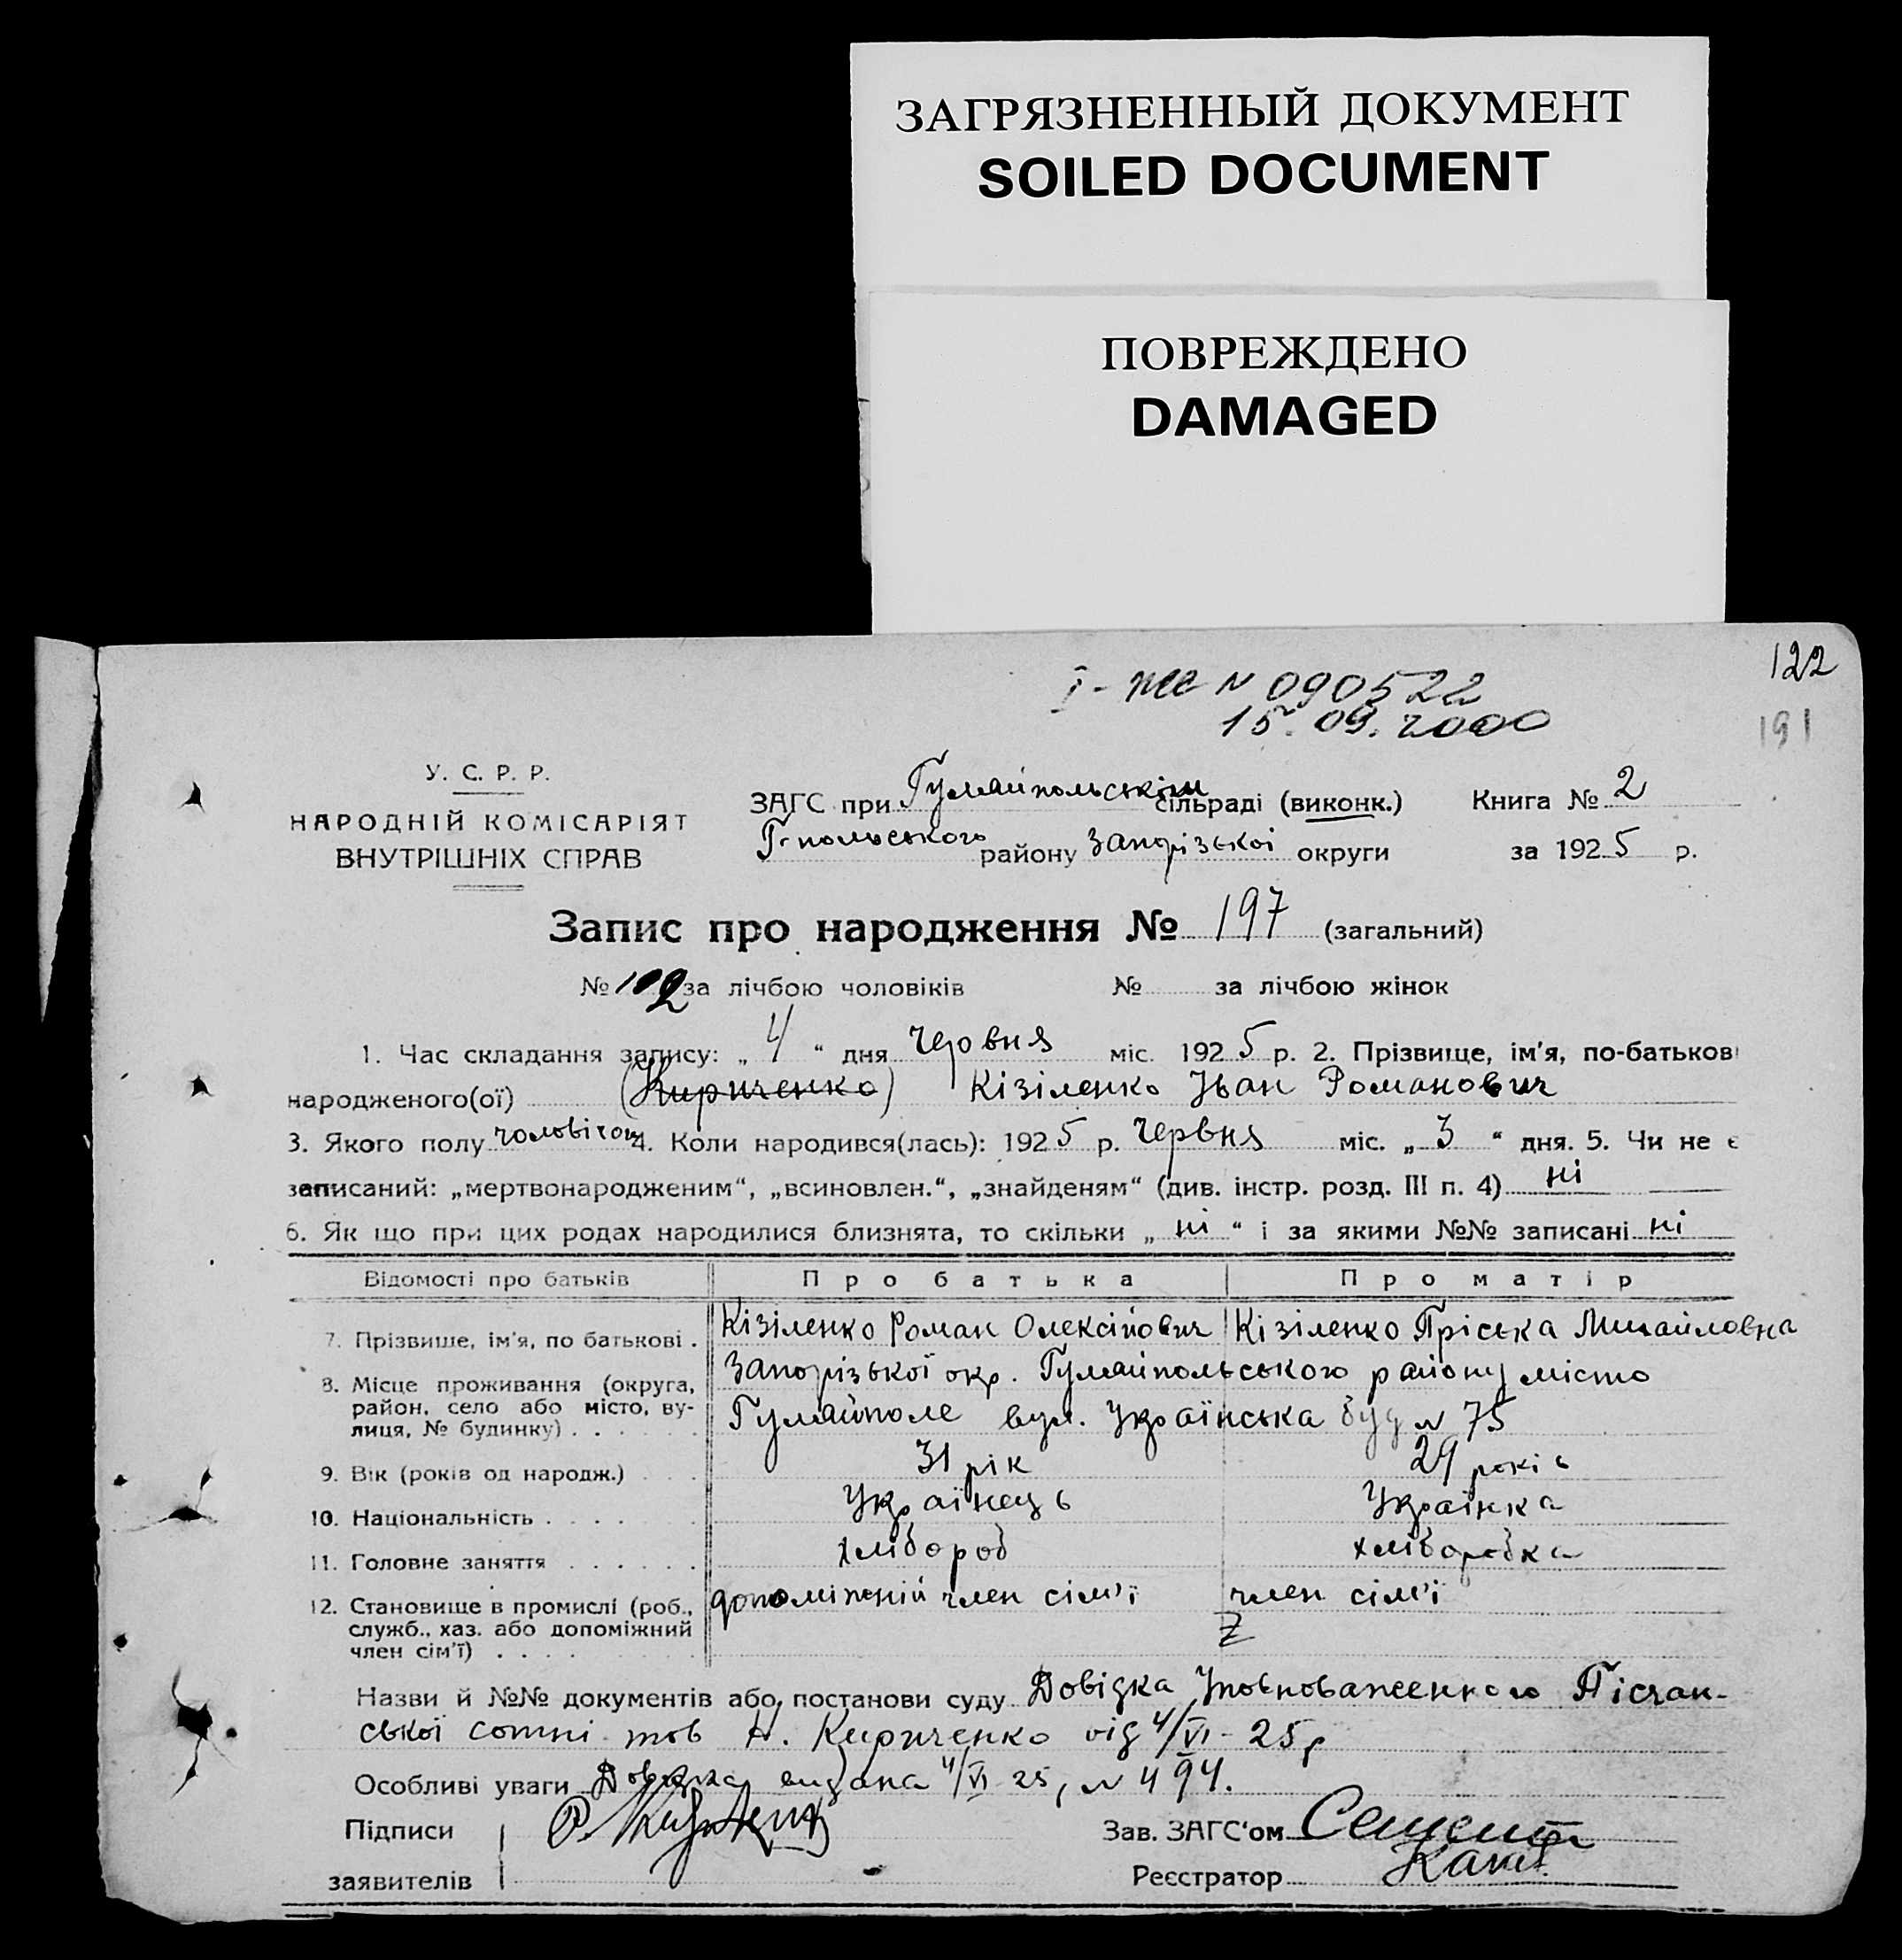 ЗАГРЯЗНЕННЫЙ ДОКУМЕНТ
SOILED DOCUMENT
ПОВРЕЖДЕНО
DAMAGED
122
І-ЖС N 090522
15.09.2000
191
У. С. Р. Р.
НАРОДНІЙ КОМІСАРІЯТ
ВНУТРІШНІХ СПРАВ
ЗАГС при Гуляйпольськім сільраді (виконк.) Книга № 2
Г-польського району Запорізької округи за 1925 р.
Запис про народження № 197 (загальний)
№ 102 за лічбою чоловіків № за лічбою жінок
1. Час складання запису: „ 4 “ дня Червня міс. 1925 р. 2. Прізвище, ім'я, по-батькові
народженого(ої) (Кириченко) Кізіленко Іван Романович
3. Якого полу чоловічого 4. Коли народився(лась): 1925 р. Червня міс. „ 3 “ дня. 5. Чи не є
записаний: „мертвонародженим“, „всиновлен.“, „знайденям“ (див. інстр. розд. III п. 4) ні
6. Як що при цих родах народилися близнята, то скільки „ ні “ і за якими №№ записані ні
Відомості про батьків Про батька Про матір
7. Прізвище, ім'я, по батькові . Кізіленко Роман Олексійович Кізіленко Пріська Михайловна
8. Місце проживання (округа, район, село або місто, вулиця, № будинку) . . . . . . Запорізької окр. Гуляйпольського району місто
Гуляйполе вул. Українська буд N 75
9. Вік (років од народж.) . . . 31 рік 29 років
10. Національність . . . . . . Українець Українка
11. Головне заняття . . . . . . хлібороб хліборобка
12. Становище в промислі (роб., служб., хаз. або допоміжний член сім'ї) . . . . допоміжній член сім'ї член сім'ї
Z
Назви й №№ документів або постанови суду Довідка Уповноваженного Пісчан-
ської сотні тов Н. Кириченко від 4/VI-25р
Особливі уваги Довідка видана 4/VI 25, N 494.
Підписи Зав. ЗАГС'ом
заявителів Реєстратор